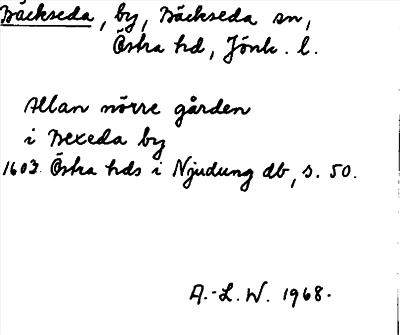 Bäckseda, by, Bäckseda sn,
Östra hd, Jönk. l.
Allan nörre gården
i Bexeda by
1603 Östra hds i Njudung db, s. 50.
A.-L. W. 1968.